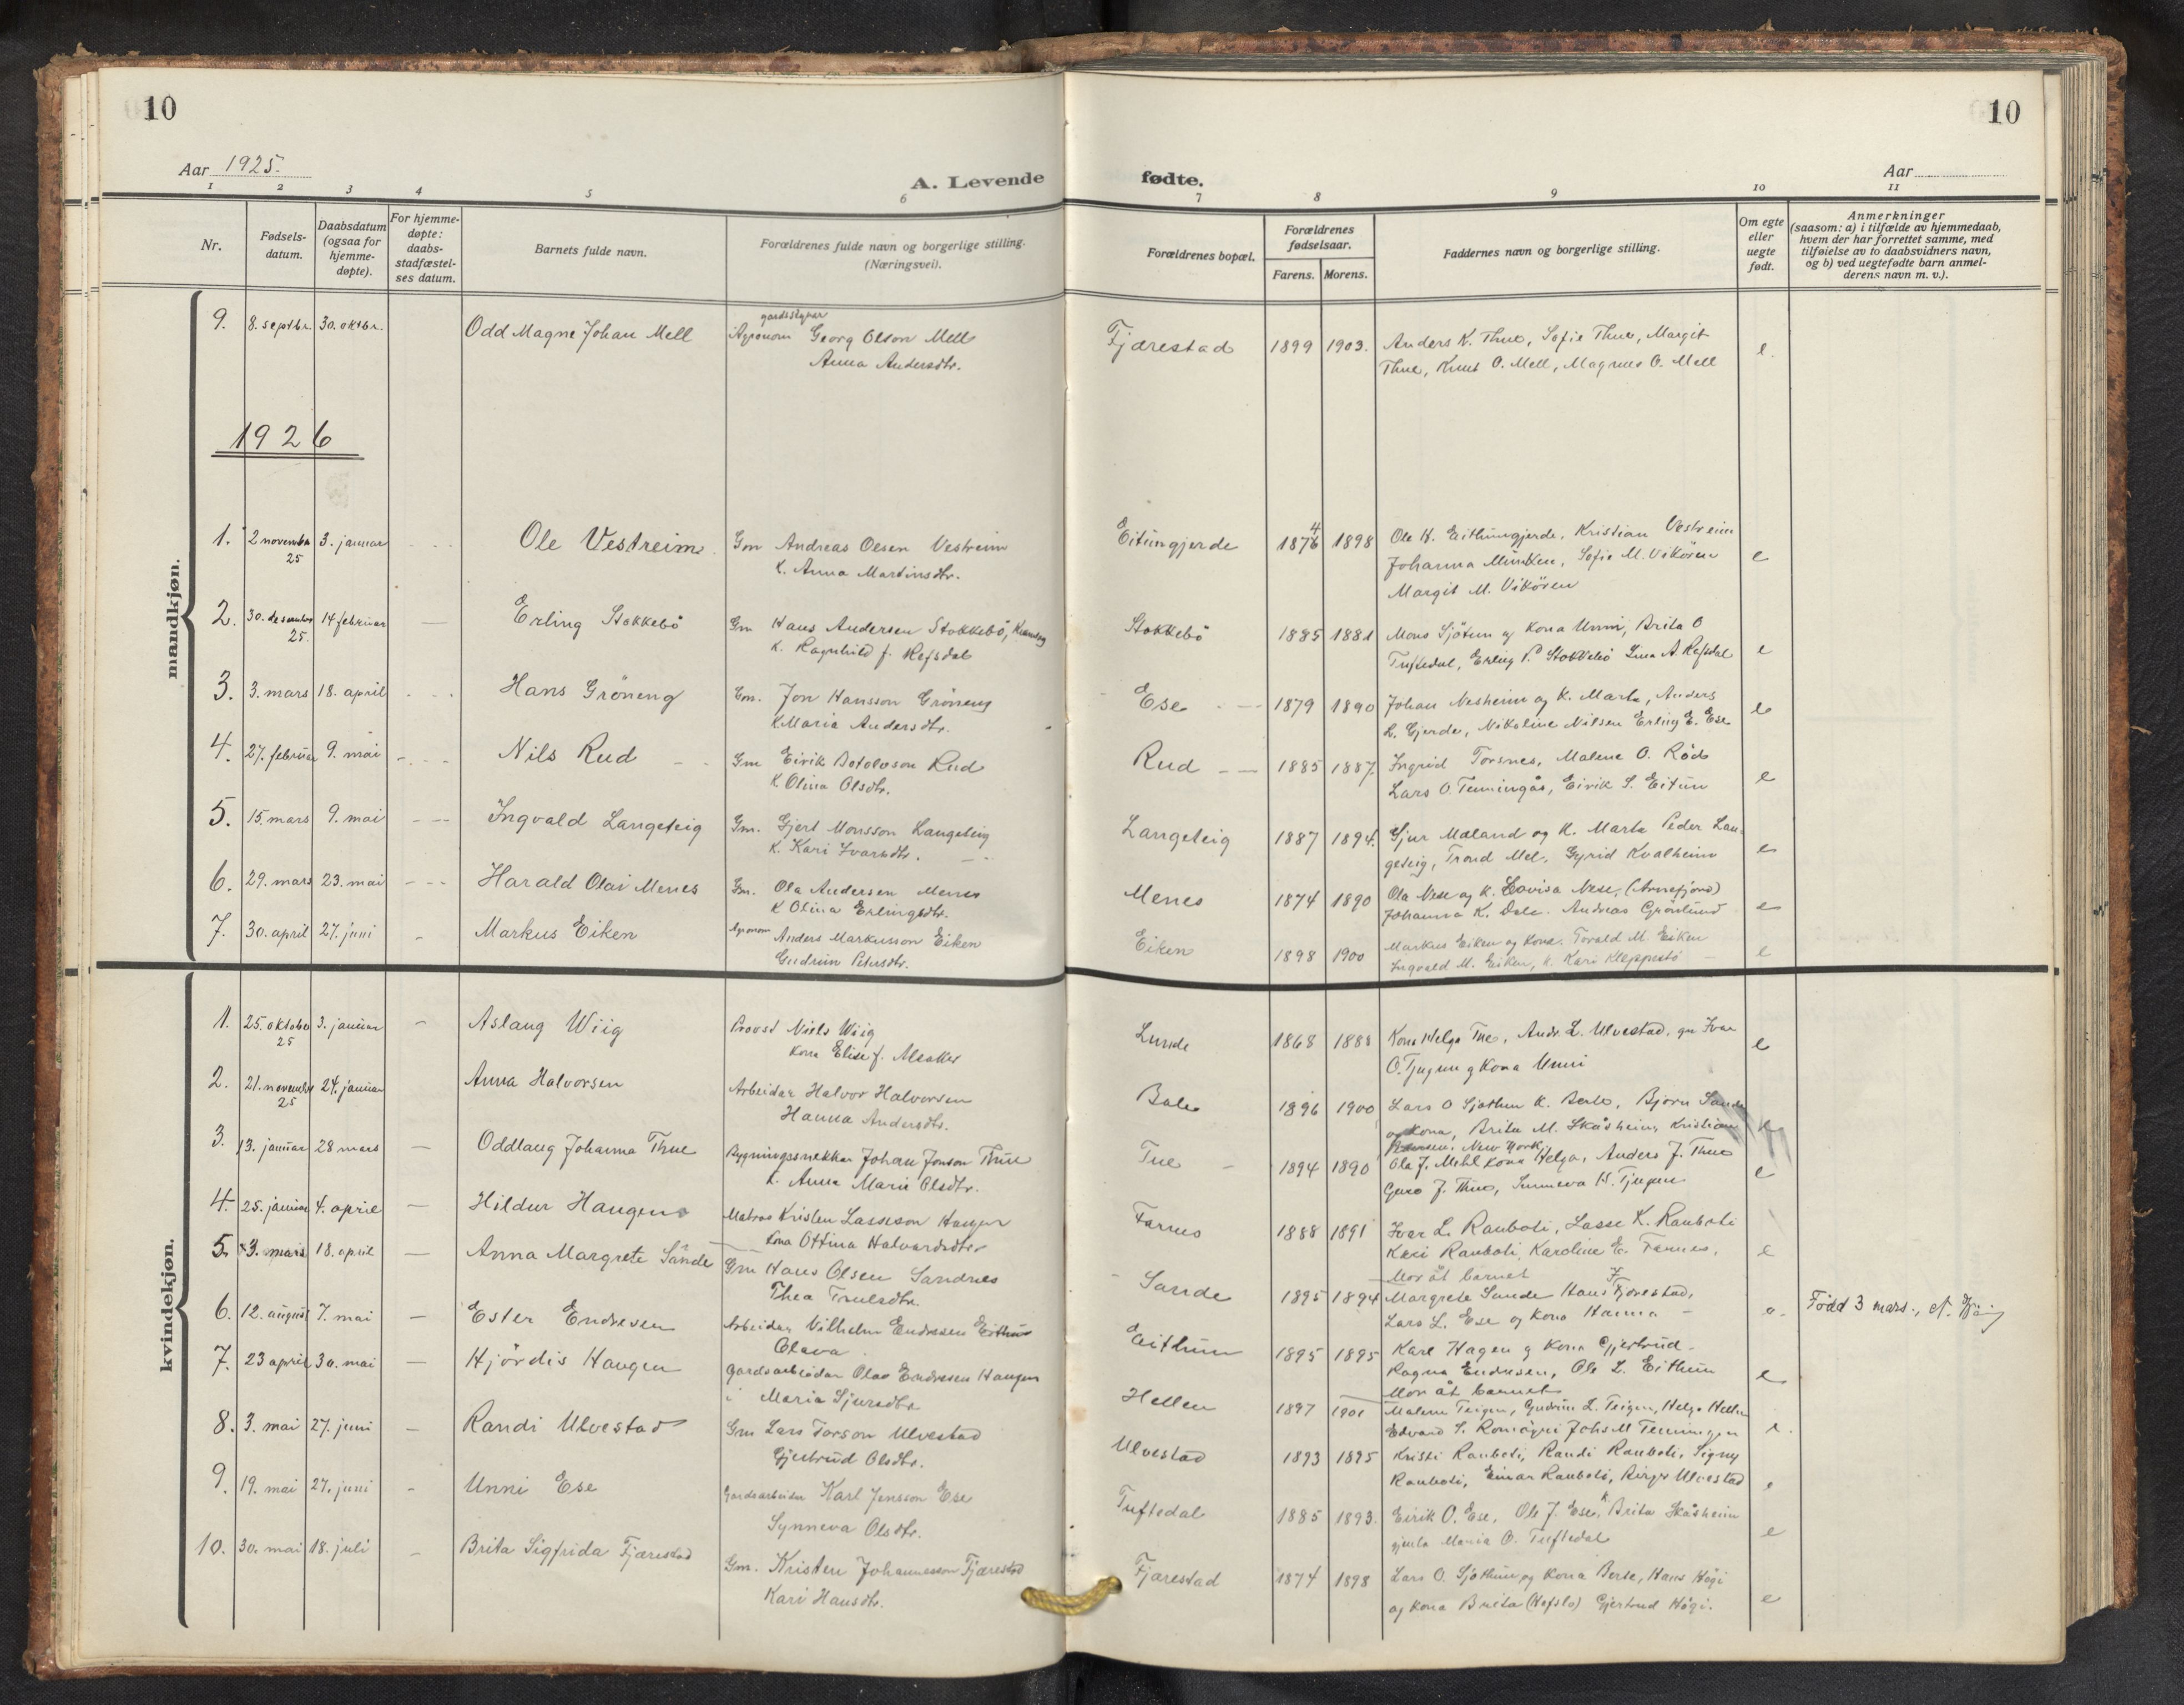 10
10
Aar 1925.
A. Levende
fødte.
Aar
1 2 3 4 5 6 7 8 9 10 11
Nr.
Fødsels-
datum.
Daabsdatum
(ogsaa for
hjemme-
døpte).
For hjemme-
døpte:
daabs-
stadfæstel-
ses datum.
Barnets fulde navn.
Forældrenes fulde navn og borgerlige stilling.
(Næringsvei).
Forældrenes bopæl.
Forældrenes
fødselsaar.
Farens. Morens.
Faddernes navn og borgerlige stilling.
Om egte
eller
uegte
født.
Anmerkninger
(saasom: a) i tilfælde av hjemmedaab,
hvem der har forrettet samme, med
tilføielse av to daabsvidners navn,
og b) ved uegtefødte barn anmel-
derens navn m. v.).
mandkjøn.
gardsstyrar
9. 8. septbr. 30. oktbr. Odd Magne Johan Mell Agronom Georg Olson Mell Fjærestad 1899 1903. Anders K. Thue, Sofie Thue, Margit e.
Anna Andersdtr. Thue, Knut O. Mell, Magnus O. Mell
1926
1. 2 november 3. januar Ole Vestreim Gm Andreas Olsen Vestreim Eitungjerde 1876 4 1898 Ole H. Eithungjerde, Kristian Vestreim e
25 K. Anna Martinsdtr. Johanna Munken, Sofie M. Vikören
Margit M. Vikören
2. 30. desember 14 februar Erling Stokkebö Gm Hans Andersen Stokkebö, Stokkebö 1885 1881 Mons Sjötun og Kona Unni, Brita O e
25. K. Ragnhild f. Refsdal Tuftedal, Erling P. Stokkebö Lina A. Refsdal
3. 3. mars 18. april Hans Gröneng Gm. Jon Hansson Gröneng Ese 1879 1890 Johan Nesheim og K. Marta, Anders e
K Maria Andersdtr. L. Gjerde, Nikoline Nilsen Erling E. Ese
4. 27. februar 9. mai Nils Rud Gm Eirik Botolvson Rud Rud 1885 1887 Ingrid Torsnes, Malene O. Röd e
K Olina Olsdtr. Lars O. Tenningås, Eirik S. Eitun
5. 15. mars 9. mai Ingvald Langeteig Gm. Gjert Monsson Langeteig Langeteig 1887 1894. Gjur Mæland og K. Marta Peder Lan- e
K. Kari Ivarsdtr. geteig, Trond Mel, Gyrid Kvalheim
6. 29. mars 23. mai Harald Olai Menes Gm. Ola Andersen Menes Menes 1874 1890 Ola Nese og K. Lovisa Nese, (Arnefjord) e
K Olina Erlingsdtr. Johanna K. Dale. Andreas Grönlund
7. 30. april 27. juni Markus Eiken Agronom Anders Markusson Eiken Eiken 1898 1900 Markus Eiken og Kona. Torald M. Eiken e
Gudrun Petersdtr. Ingvald M. Eiken, K. Kari Kleppestö
kvindekjøn.
1. 25. oktober 3. januar Aslaug Wiig Provst Niels Wiig Lunde 1868 1888 Kona Helga Tue, Andr. L. Ulvestad, gu Ivar e
25 Kona Elise f. Alsaker O. Tjugum g Kona Unni
2. 21. november 24. januar Anna Halvorsen Arbeidar Halvor Halvorsen Bale 1896 1900 Lars O Sjøthun K. Berte, Bjorn Sande
25 Hanna Andersdtr. og Kona, Brita M. Skåsheim, Kristian
New York
3. 13. januar 28 mars Oddlaug Johanna Thue Bygningssnekkar Johan Jonson Thue Tue 1894 1890 Ola J. Mehl Kona Helga, Anders J. Thue e
K. Anna Marie Olsdtr. Guro J. Thue, Sunneva H. Tjugum
4. 25. januar 4. april Hildur Haugen Matros Kristen Lasseson Haugen Farnes 1888 1891 Ivar L. Rauboti, Lasse K. Rauboti e
Kona Ottina Halvardsdtr Kari Rauboti, Karoline E. Farnes,
Mor åt barnet
5. 3. mars 18. april Anna Margrete Sande Gm Hans Olsen Sandnes Sande 1895 1894 Margrete Sande Hans F. Fjærestad, e. Född 3 mars.,
Thea Truelsdtr. Lars L. Ese og Kona Hanna
6. 12. august 7. mai Ester Endresen Arbeidar Vilhelm Endresen Eithun Eithun 1895 1895 Karl Hagen g Kona Gjertrud e
Olava Ragna Endresen, Ole L. Eithun
Mor åt barnet
7. 23 april 30. mai Hjördis Haugen Gardsarbeidar Olav Endresen Haugen Hellen 1897 1901 Malene Teigen, Gudrun L. Teigen, Helga Hellen e.
Maria Sjursdtr Edvard S. Romöyri Johs M Tenningen
8. 3. mai 27. juni Randi Ulvestad Gm Lars Torson Ulvestad Ulvestad 1893 1895 Kristi Rauboti, Randi Rauboti, Signy e
Gjertrud Olsdtr. Rauboti, Einar Rauboti, Birger Ulvestad
9. 19. mai 27. juni Unni Ese Gardsarbeidar Karl Jensson Ese Tuftedal 1885 1893. Eirik O. Ese, Ole J. Ese, K. Brita Skåsheim e
Synneva Olsdtr. gjenta Maria O. Tuftedal
10. 30. mai 18. juli Brita Sigfrida Fjærestad Gm. Kristen Johannesson Fjærestad Fjærestad 1874 1898 Lars O. Sjøthun og Kona Berte, Hans Högi e
Kari Hansdtr. og Kona Brita (Hafslo) Gjertrud Högi.